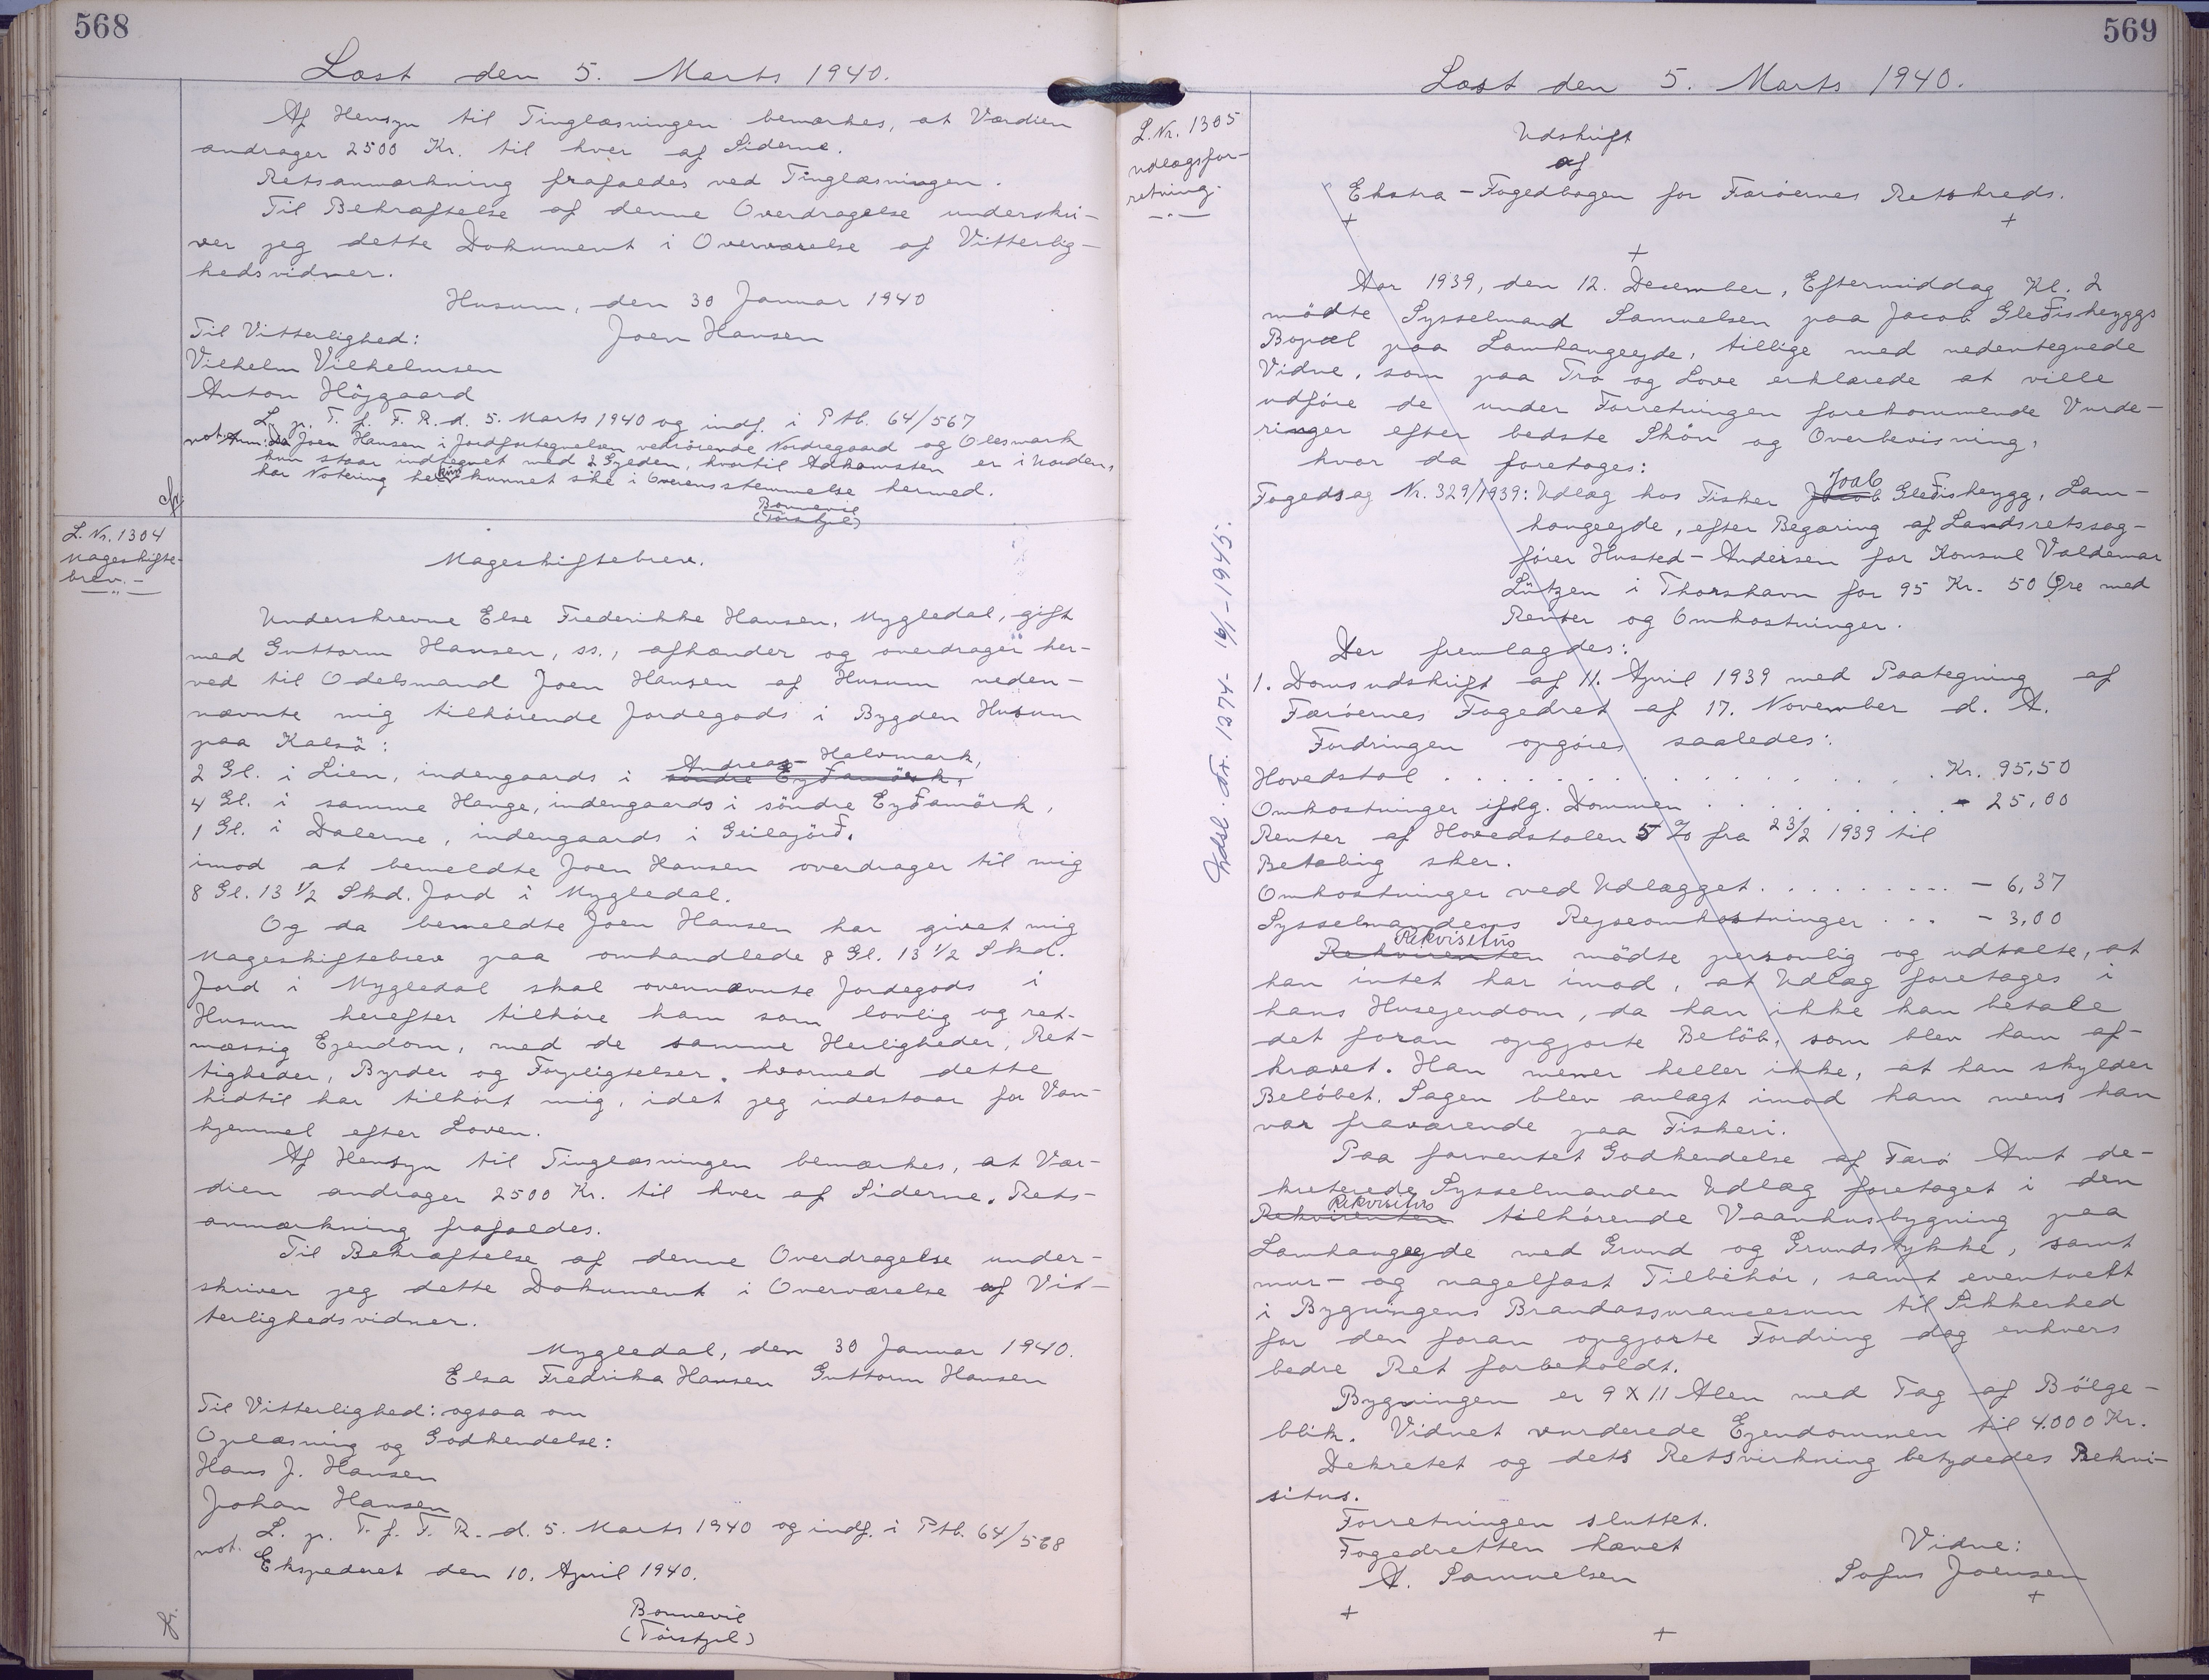 568
Læst den 5. Marts 1940.
Af Hensyn til Tinglæsningen bemærkes, at Værdien
andrager 2500 Kr. til hver af Siderne.
Retsanmærkning frafaldes ved Tinglæsningen.
Til Bekræftelse af denne Overdragelse underskri-
ver jeg dette Dokument i Overværelse af Vitterlig-
hedsvidner.
Husum, den 30 Januar 1940
Til Vitterlighed: Joen Hansen
Vilhelm Vilhelmsen
Anton Højgaard
L. p. T. f. F. R. d. 5. Marts 1940 og indf. i Ptb. 64/567
not. Anm: Da Joen Hansen i Jordfortegnelsen vedrørende Nordregaard og Olesmark
kun staar indtegnet med 2 Gylden, hvortil Adkomsten er i Orden,
har Notering her kun kunnet ske i Overensstemmelse hermed.
Bonnevie
(Törstzel)
cfr.
L. Nr. 1304
Mageskifte-
brev.
Mageskiftebrev.
Underskrevne Else Frederikke Hansen, Mygledal, gift
med Guttorm Hansen, ss., afhænder og overdrager her-
ved til Odelsmand Joen Hansen af Husum neden-
nævnte mig tilhörende Jordegods i Bygden Husum
paa Kalsö:
Andreas-Halvmark,
2 Gl. i Lien, indengaards i söndre Eyðamörk,
4 Gl. i samme Hauge, indengaards i söndre Eyðamörk,
1 Gl. i Dalerne, indengaards i Geilajörð.
imod at bemeldte Joen Hansen overdrager til mig
8 Gl. 13 1/2 Skd. Jord i Mygledal.
Og da bemeldte Joen Hansen har givet mig
Mageskiftebrev paa omhandlede 8 Gl. 13 1/2 Skd.
Jord i Mygledal skal ovennævnte Jordegods i
Husum herefter tilhöre ham som lovlig og ret-
mæssig Ejendom, med de samme Herligheder, Ret-
tigheder, Byrder og Forpligtelser, hvormed dette
hidtil har tilhört mig, idet jeg indestaar for Van-
hjemmel efter Loven.
Af Hensyn til Tinglæsningen bemærkes, at Vær-
dien andrager 2500 Kr. til hver af Siderne. Rets-
anmærkning frafaldes.
Til Bekræftelse af denne Overdragelse under-
skriver jeg dette Dokument i Overværelse af Vit-
terlighedsvidner.
Mygledal, den 30 Januar 1940.
Elsa Fredrika Hansen Guttorm Hansen
Til Vitterlighed: ogsaa om
Oplæsning og Godkendelse:
Hans J. Hansen
Johan Hansen
L. p. T. f. F. R. d. 5. Marts 1940 og indf. i Ptb. 64/568
not.
Ekspederet den 10. April 1940.
Bonnevie
(Törstzel)
569
Læst den 5. Marts 1940.
L. Nr. 1305
Udlægsfor-
retning.
Udskrift
af
Ekstra-Fogedbogen for Færöernes Retskreds.
Aar 1939, den 12. December, Eftermiddag Kl. 2
mödte Sysselmand Samuelsen paa Jacob Gleðisheyggs
Bopæl paa Lamhaugeejde, tillige med nedentegnede
Vidne, som paa Tro og Love erklærede at ville
udföre de under Forretningen forekommende Vurde-
ringer efter bedste Skön og Overbevisning,
hvor da foretoges:
Joab
Fogedsag Nr. 329/1939: Udlæg hos Fisker Jacob Gleðisheygg, Lam-
haugeejde, efter Begæring af Landsretssag-
förer Husted-Andersen for Konsul Valdemar
Lützen i Thorshavn for 95 Kr. 50 Øre med
Renter og Omkostninger.
Der fremlagdes:
1. Domsudskrift af 11. April 1939 med Paategning af
Færöernes Fogedret af 17. November d. A.
Fordringen opgöres saaledes:
Hovedstol . . . . . . . . . . Kr. 95,50
Omkostninger ifölg. Dommen . . . . . - 25,00
Renter af Hovedstolen 5 % fra 23/2 1939 til
Betaling sker.
Omkostninger ved Udlægget . . . . . . . . . - 6,37
Sysselmandens Rejseomkostninger . . . - 3,00
Rekvisitus
Rekvirenten mödte personlig og udtalte, at
han intet har imod, at Udlæg foretages i
hans Husejendom, da han ikke kan betale
det foran opgjorte Belöb, som blev ham af-
krævet. Han mener heller ikke, at han skylder
Belöbet. Sagen blev anlagt imod ham mens han
var fraværende paa Fiskeri.
Paa forventet Godkendelse af Færö Amt de-
kreterede Sysselmanden Udlæg foretaget i den
Rekvisitus
Rekvirenten tilhörende Vaanhusbygning paa
Lamhaugeejde med Grund og Grundstykke, samt
mur- og nagelfast Tilbehör, samt eventuelt
i Bygningens Brandassurancesum til Sikkerhed
for den foran opgjorte Fordring dog enhvers
bedre Ret forbeholdt.
Bygningen er 9 X 11 Alen med Tag af Bölge-
blik. Vidnet vurderede Ejendommen til 4.000 Kr.
Dekretet og dets Retsvirkning betydedes Rekvi-
situs.
Forretningen sluttet.
Fogedretten hævet
Vidne:
A. Samuelsen
Sofus Joensen